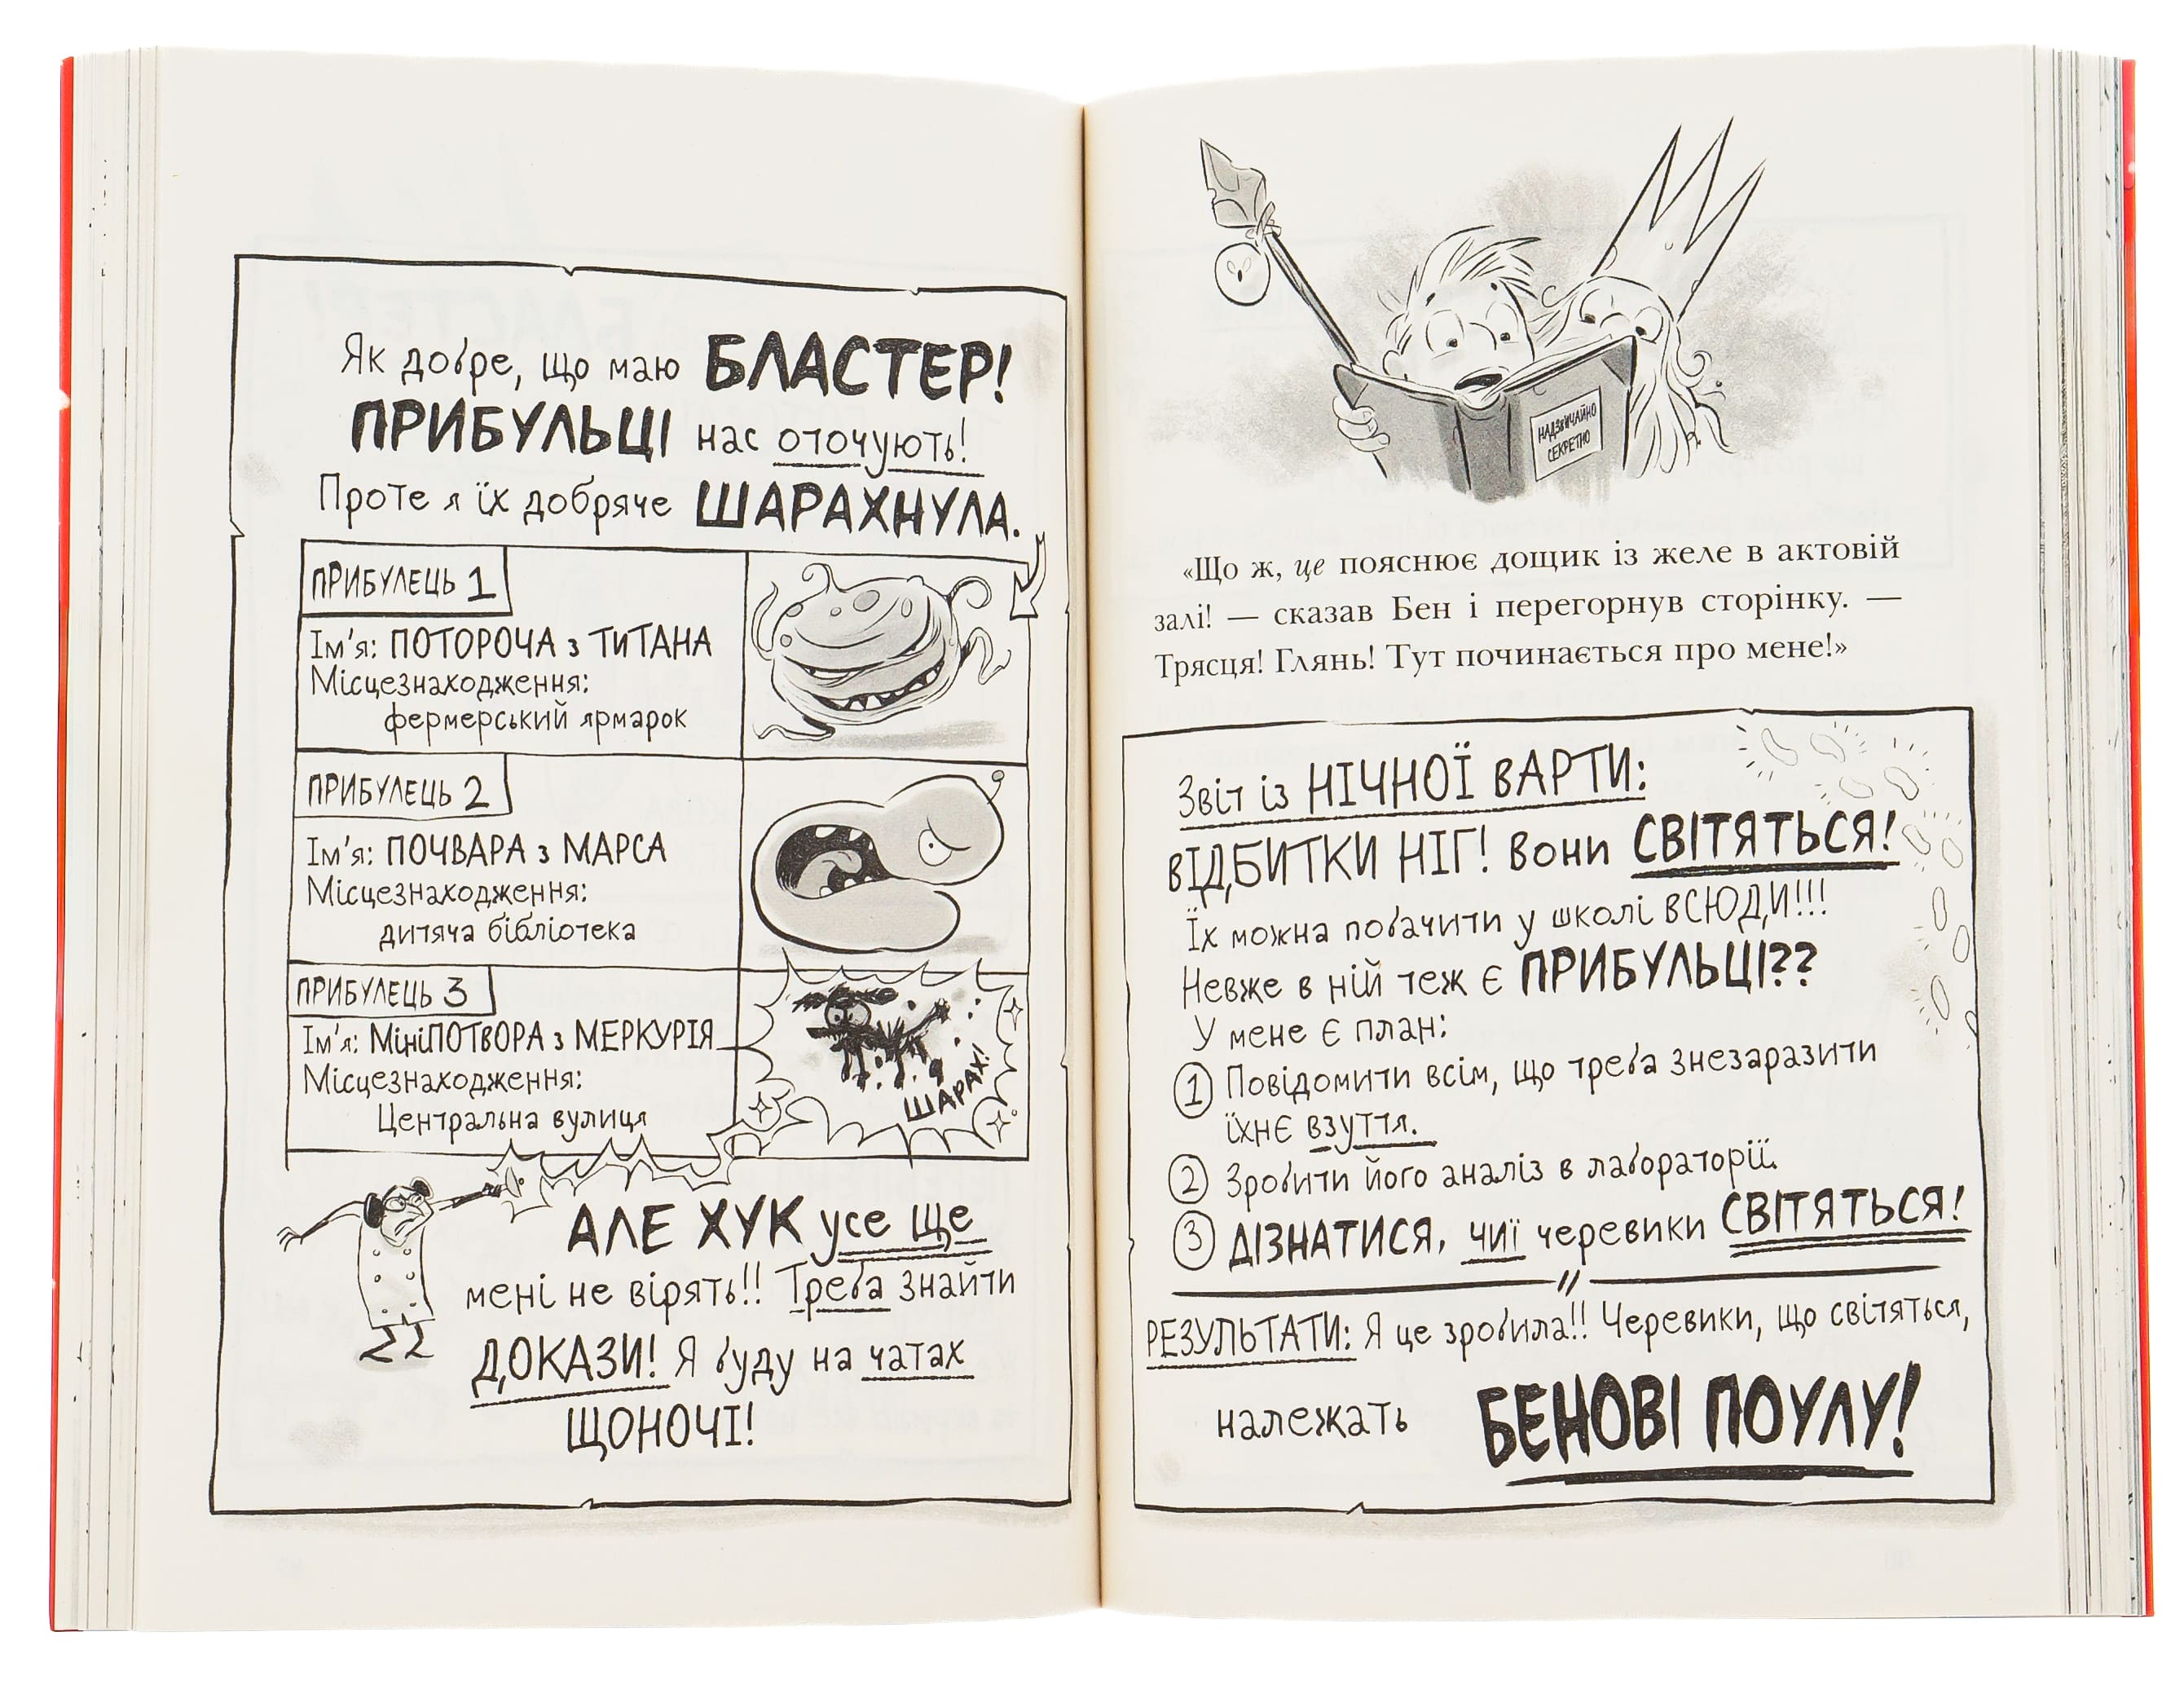 Як добре, що маю БЛАСТЕР!
ПРИБУЛЬЦІ нас оточують!
Проте я їх добряче ШАРАХНУЛА.
ПРИБУЛЕЦЬ 1
Ім'я: ПОТОРОЧА з ТИТАНА
Місцезнаходження:
фермерський ярмарок
ПРИБУЛЕЦЬ 2
Ім'я: ПОЧВАРА з МАРСА
Місцезнаходження:
дитяча бібліотека
ПРИБУЛЕЦЬ 3
Ім'я: МініПОТВОРА з МЕРКУРІЯ
Місцезнаходження:
Центральна вулиця
ШАРАХ!
АЛЕ ХУК усе ще
мені не вірять!! Треба знайти
ДОКАЗИ! Я буду на чатах
ЩОНОЧІ!
НАДЗВИЧАЙНО
СЕКРЕТНО
«Що ж, це пояснює дощик із желе в актовій
залі! — сказав Бен і перегорнув сторінку. —
Трясця! Глянь! Тут починається про мене!»
Звіт із НІЧНОЇ ВАРТИ:
ВІДБИТКИ НІГ! Вони СВІТЯТЬСЯ!
Їх можна побачити у школі ВСЮДИ!!!
Невже в ній теж є ПРИБУЛЬЦІ??
У мене є план:
1 Повідомити всім, що треба знезаразити
їхнє взуття.
2 Зробити його аналіз в лабораторії.
3 ДІЗНАТИСЯ, чиї черевики СВІТЯТЬСЯ!
РЕЗУЛЬТАТИ: Я це зробила!! Черевики, що світяться,
належать БЕНОВІ ПОУЛУ!